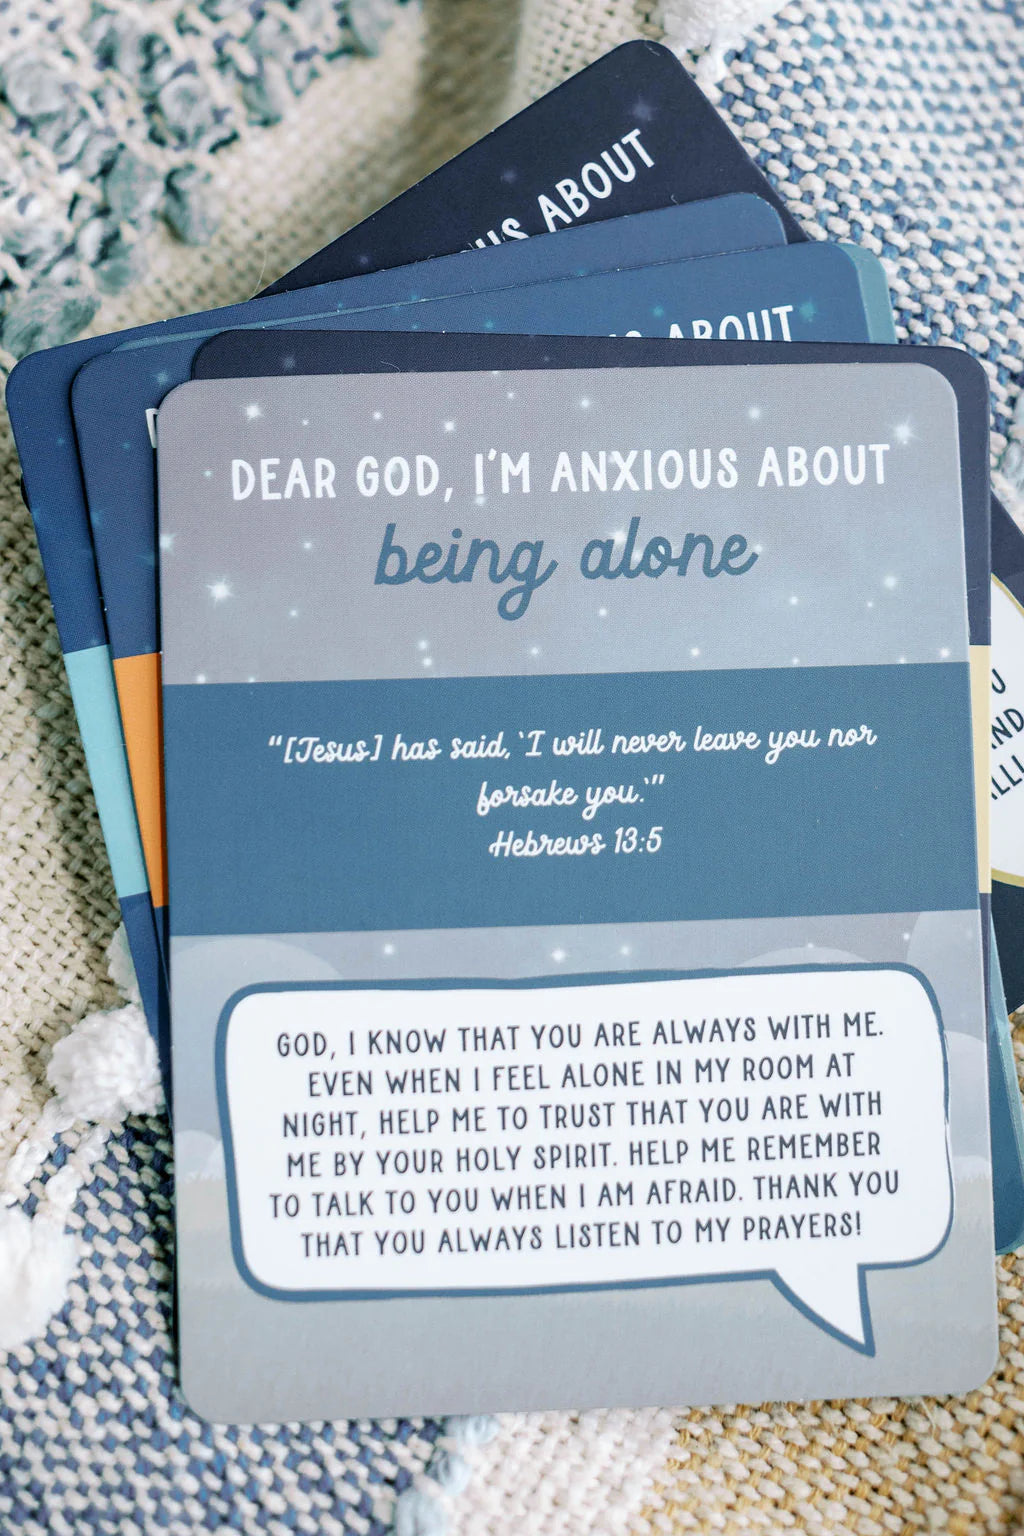 US ABOUT
ABOUT
DEAR GOD, I'M ANXIOUS ABOUT
being alone
"[Jesus] has said, 'I will never leave you nor
forsake you.'"
Hebrews 13:5
GOD, I KNOW THAT YOU ARE ALWAYS WITH ME.
EVEN WHEN I FEEL ALONE IN MY ROOM AT
NIGHT, HELP ME TO TRUST THAT YOU ARE WITH
ME BY YOUR HOLY SPIRIT. HELP ME REMEMBER
TO TALK TO YOU WHEN I AM AFRAID. THANK YOU
THAT YOU ALWAYS LISTEN TO MY PRAYERS!